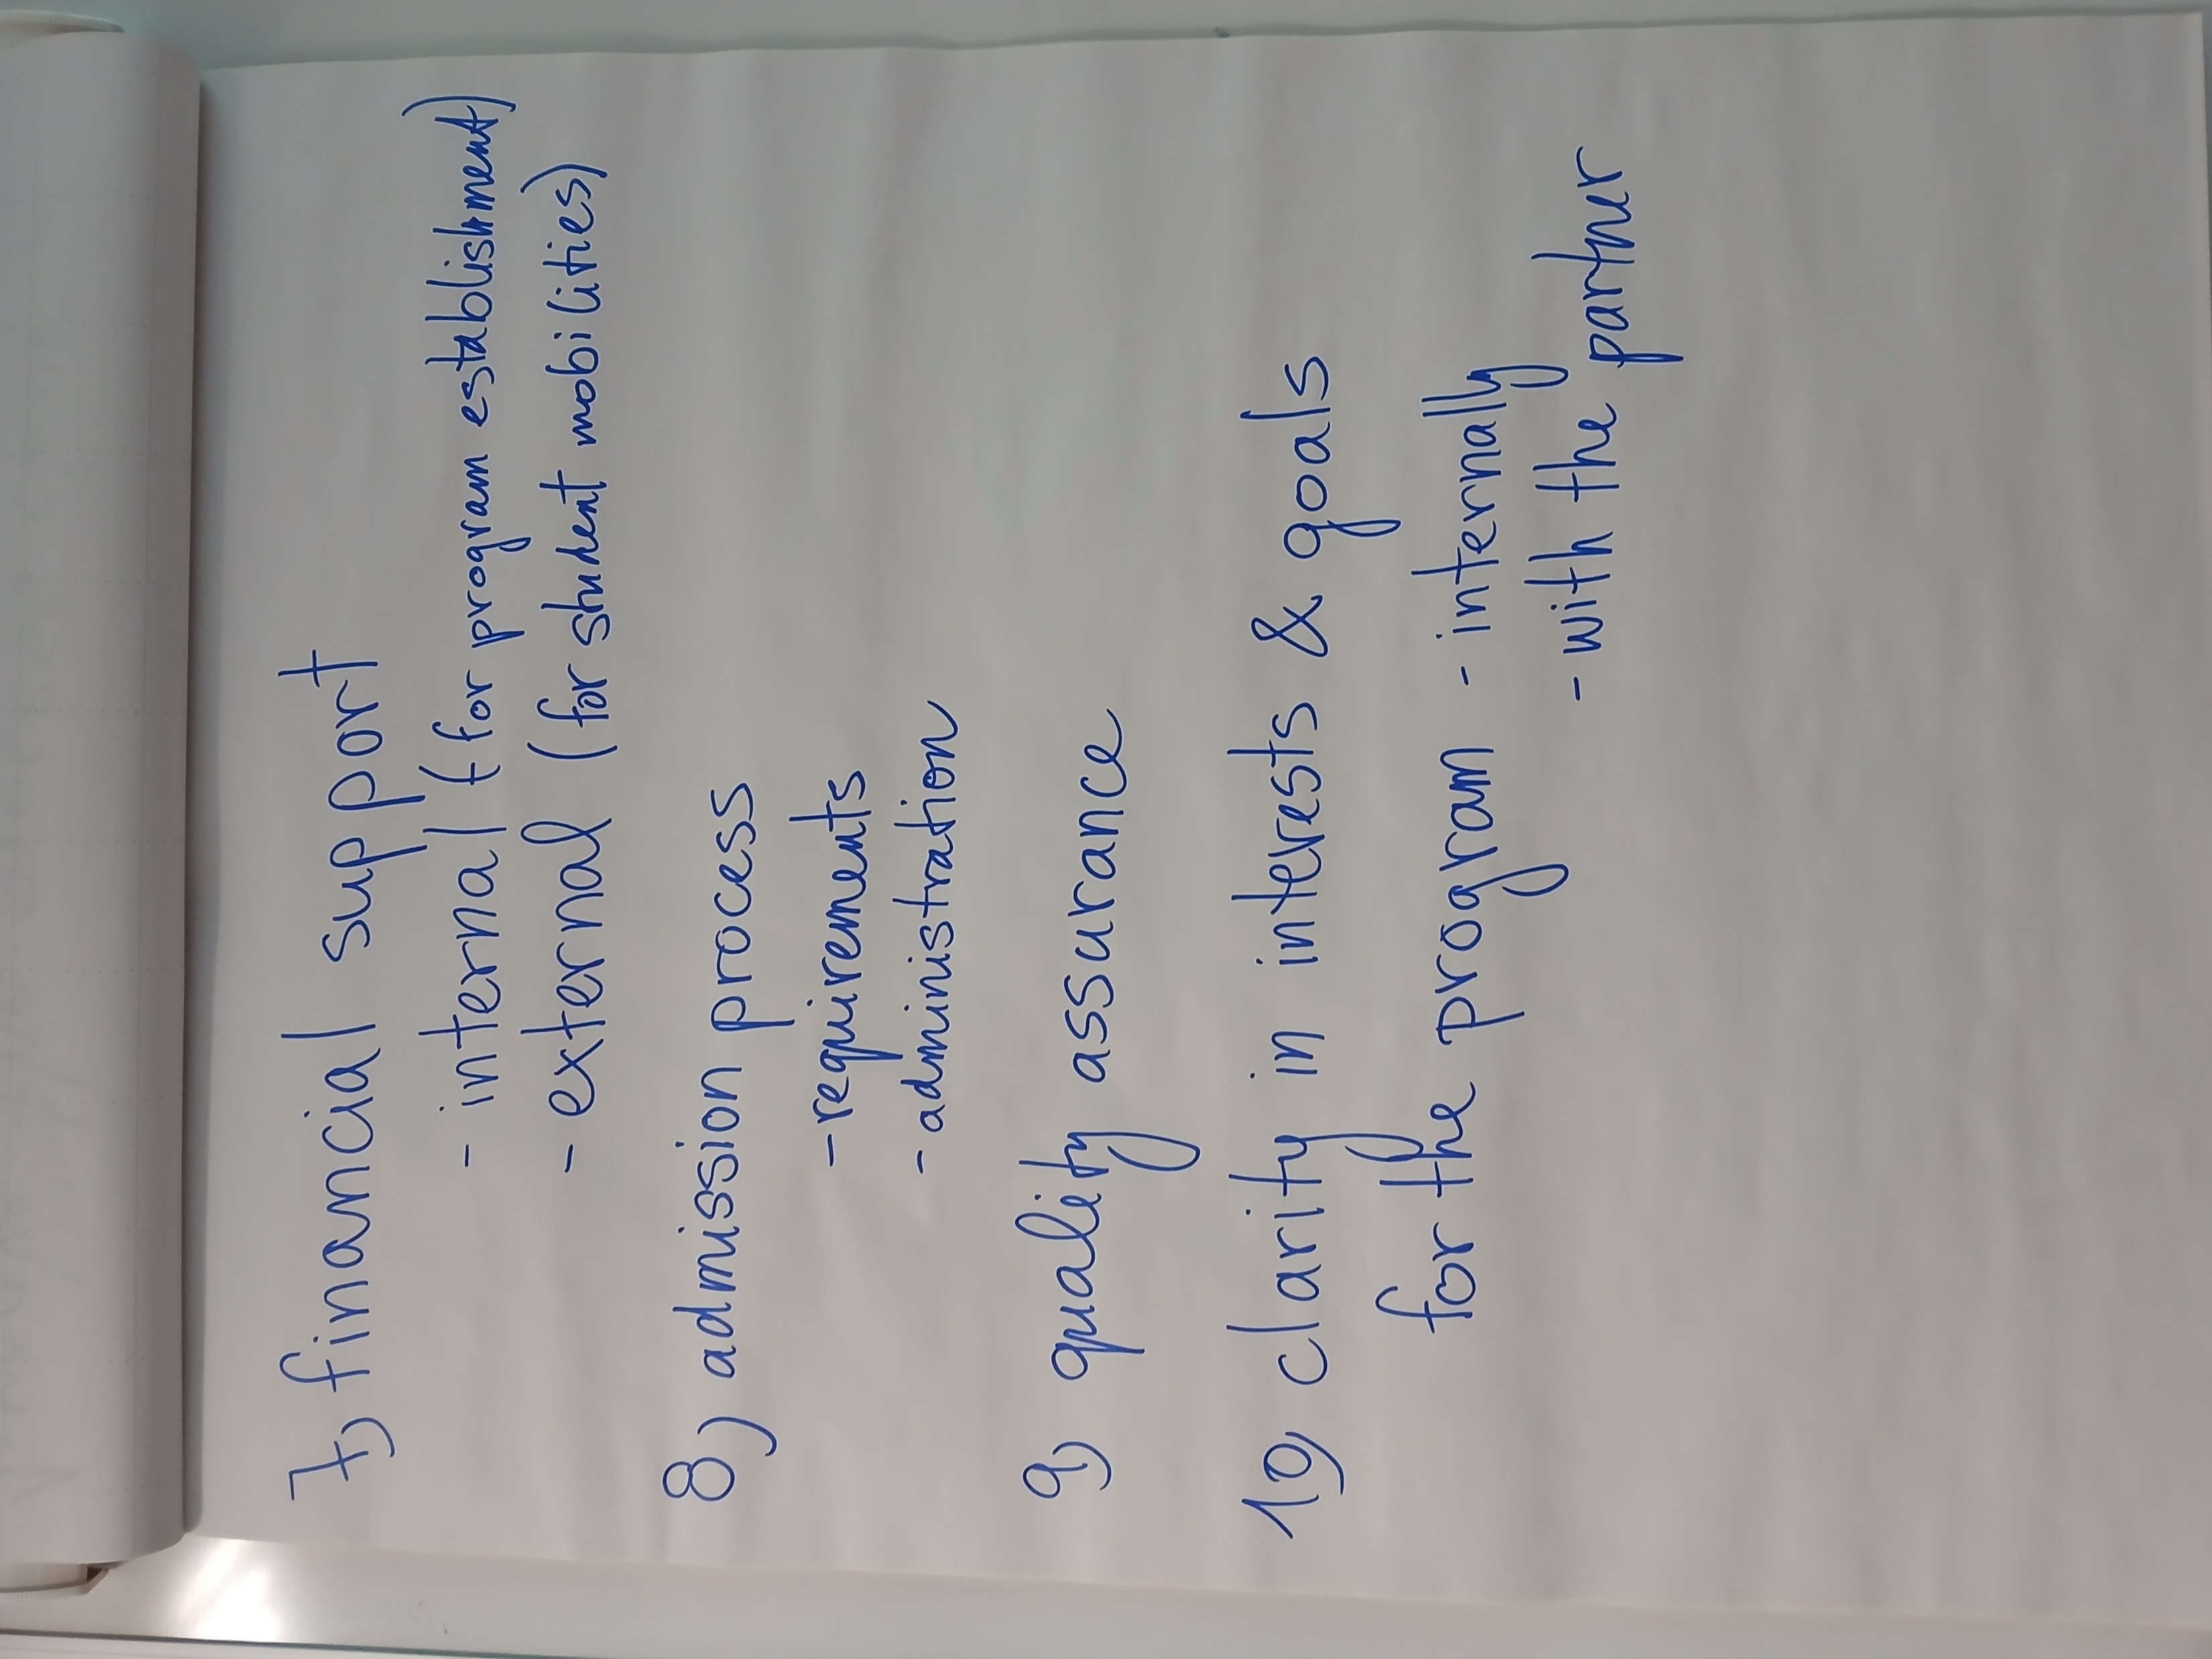 7) financial support
- internal (for program establishment)
- external (for student mobilities)
8) admission process
- requirements
- administration
9) quality assurance
10) clarity in interests & goals
for the program - internally
- with the partner